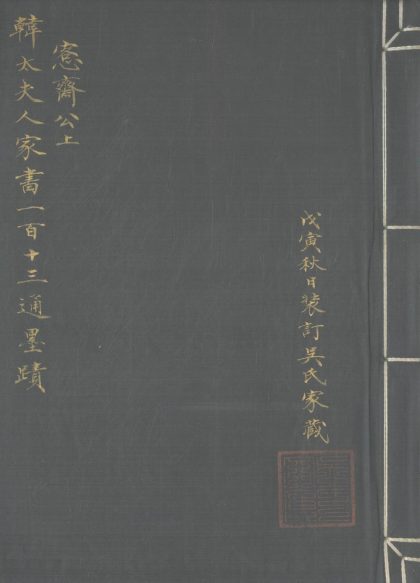 戊寅秋日裝訂吳氏家藏
愙齋公上
韓太夫人家書一百十三通墨蹟